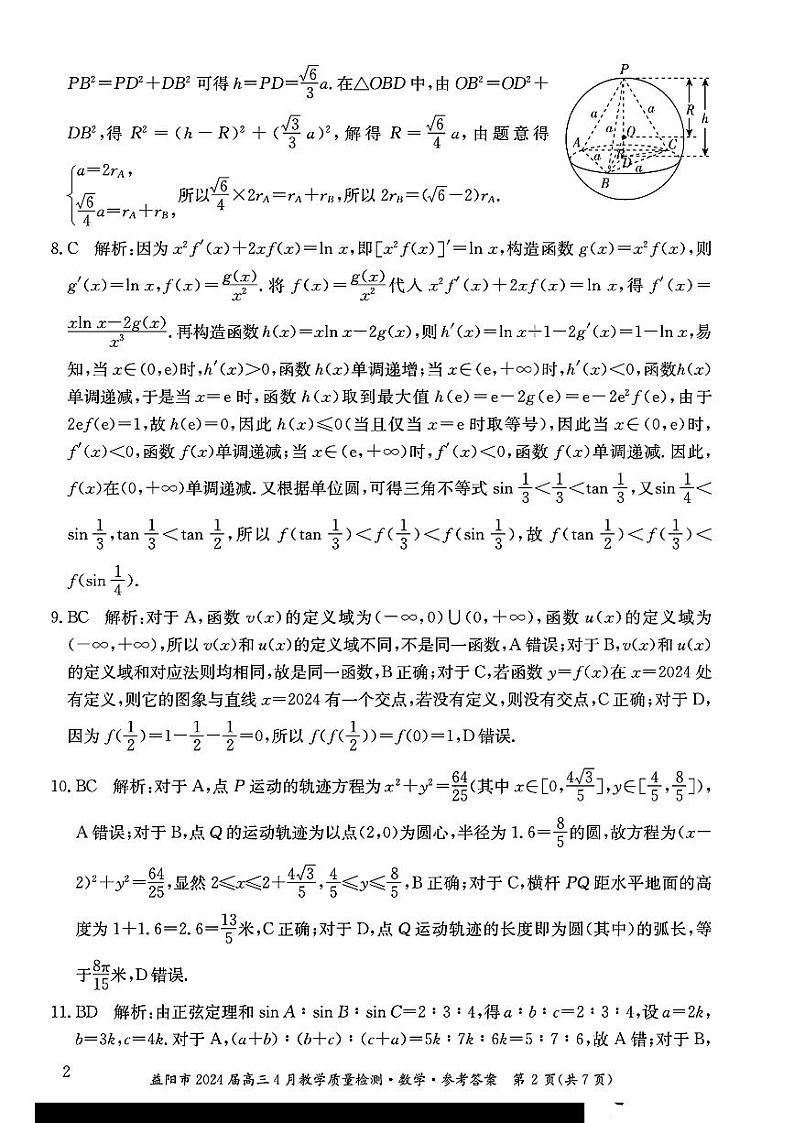 PB²=PD²+DB² 可得 h=PD=√6/3 a. 在△OBD 中,由 OB²=OD²+
DB²,得 R²=(h-R)²+(√3/3 a)²,解得 R=√6/4 a,由题意得
{a=2r_A,
√6/4 a=r_A+r_B, 所以√6/4×2r_A=r_A+r_B,所以 2r_B=(√6-2)r_A.
P
a
a
a
R
h
O
A
C
R
D
a
a
B
8. C 解析:因为 x²f′(x)+2xf(x)=ln x,即[x²f(x)]′=ln x,构造函数 g(x)=x²f(x),则
g′(x)=ln x,f(x)=g(x)/x². 将 f(x)=g(x)/x² 代人 x²f′(x)+2xf(x)=ln x,得 f′(x)=
xln x-2g(x)/x³. 再构造函数 h(x)=xln x-2g(x),则 h′(x)=ln x+1-2g′(x)=1-ln x,易
知,当 x∈(0,e)时,h′(x)>0,函数 h(x)单调递增;当 x∈(e,+∞)时,h′(x)<0,函数h(x)
单调递减,于是当 x=e 时,函数 h(x)取到最大值 h(e)=e-2g(e)=e-2e²f(e),由于
2ef(e)=1,故 h(e)=0,因此 h(x)⩽0(当且仅当 x=e 时取等号),因此当 x∈(0,e)时,
f′(x)<0,函数 f(x)单调递减;当 x∈(e,+∞)时,f′(x)<0,函数 f(x)单调递减. 因此,
f(x)在(0,+∞)单调递减. 又根据单位圆,可得三角不等式 sin 1/3<1/3<tan 1/3,又sin 1/4<
sin 1/3,tan 1/3<tan 1/2,所以 f(tan 1/3)<f(1/3)<f(sin 1/3),故 f(tan 1/2)<f(1/3)<
f(sin 1/4).
9. BC 解析:对于 A,函数 v(x)的定义域为(-∞,0)∪(0,+∞),函数 u(x)的定义域为
(-∞,+∞),所以 v(x)和 u(x)的定义域不同,不是同一函数,A 错误;对于 B,v(x)和 u(x)
的定义域和对应法则均相同,故是同一函数,B 正确;对于 C,若函数 y=f(x)在 x=2024 处
有定义,则它的图象与直线 x=2024 有一个交点,若没有定义,则没有交点,C 正确;对于 D,
因为 f(1/2)=1-1/2-1/2=0,所以 f(f(1/2))=f(0)=1,D 错误.
10. BC 解析:对于 A,点 P 运动的轨迹方程为 x²+y²=64/25(其中 x∈[0,4√3/5],y∈[4/5,8/5]),
A 错误;对于 B,点 Q 的运动轨迹为以点(2,0)为圆心,半径为 1.6=8/5的圆,故方程为(x-
2)²+y²=64/25,显然 2⩽x⩽2+4√3/5,4/5⩽y⩽8/5,B 正确;对于 C,横杆 PQ 距水平地面的高
度为 1+1.6=2.6=13/5米,C 正确;对于 D,点 Q 运动轨迹的长度即为圆(其中)的弧长,等
于8π/15米,D 错误.
11. BD 解析:由正弦定理和 sin A∶sin B∶sin C=2∶3∶4,得 a∶b∶c=2∶3∶4,设 a=2k,
b=3k,c=4k. 对于 A,(a+b)∶(b+c)∶(c+a)=5k∶7k∶6k=5∶7∶6,故 A 错;对于 B,
2
益阳市 2024 届高三 4 月教学质量检测·数学·参考答案 第 2 页(共 7 页)